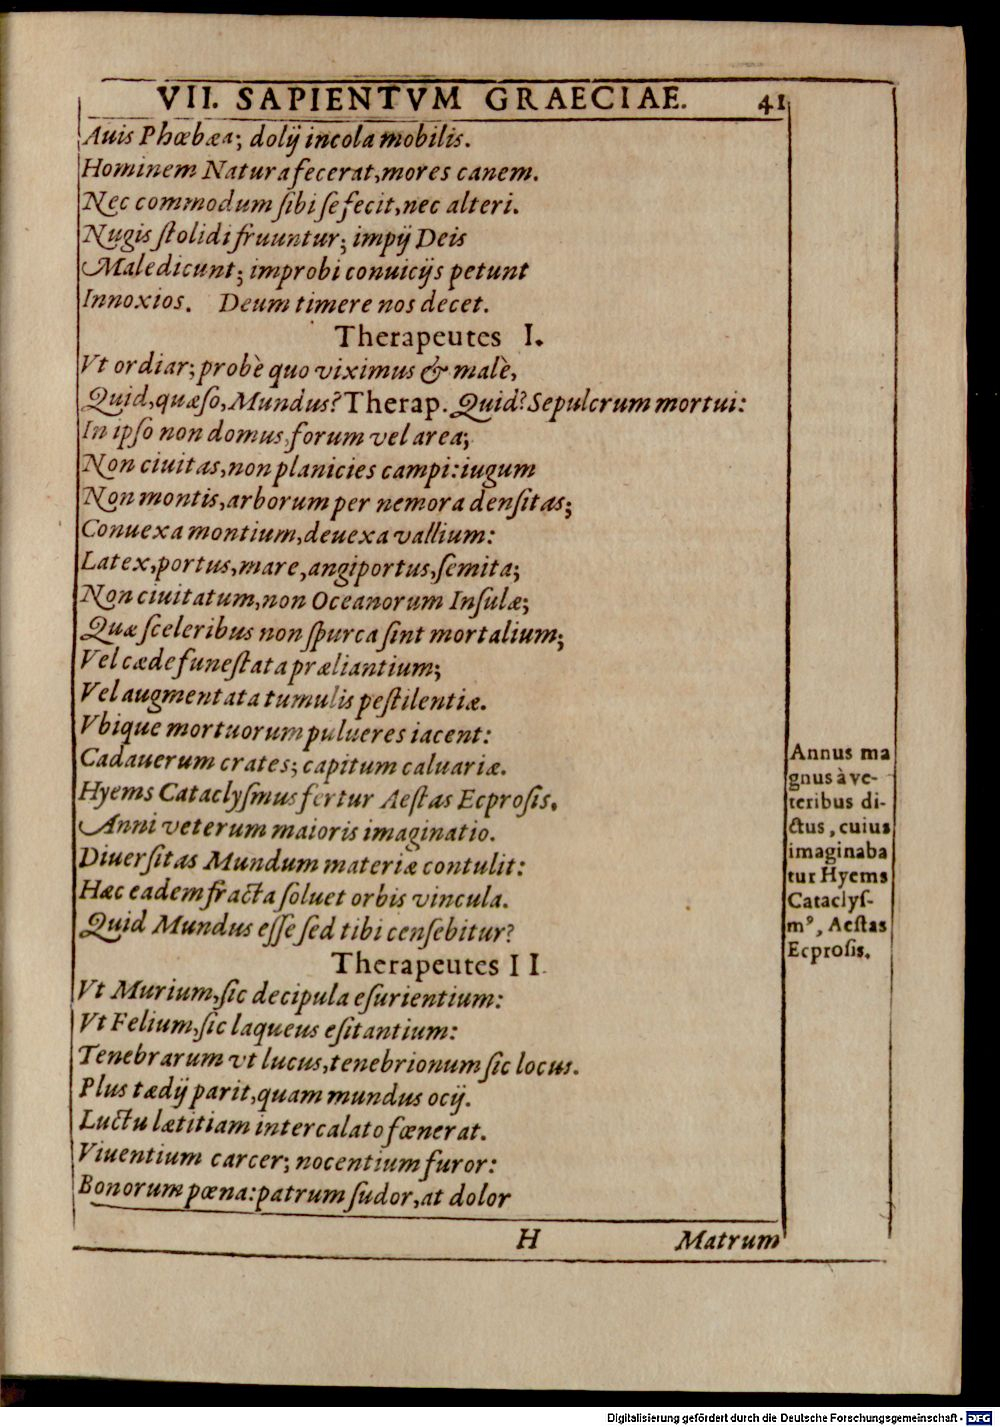 VII. SAPIENTVM GRAECIAE. 41
Auis Phœbæa; dolij incola mobilis.
Hominem Natura fecerat, mores canem.
Nec commodum ſibi ſe fecit, nec alteri.
Nugis ſtolidi fruuntur; impij Deis
Maledicunt; improbi conuicijs petunt
Innoxios. Deum timere nos decet.
Therapeutes I.
Vt ordiar; probè quo viximus & malè,
Quid, quæſo, Mundus? Therap. Quid? Sepulcrum mortui:
In ipſo non domus, forum vel area;
Non ciuitas, non planicies campi: iugum
Non montis, arborum per nemora denſitas;
Conuexa montium, deuexa vallium:
Latex, portus, mare, angiportus, ſemita;
Non ciuitatum, non Oceanorum Inſulæ;
Quæ ſceleribus non ſpurca ſint mortalium;
Vel cæde funeſtata præliantium;
Vel augmentata tumulis peſtilentiæ.
Vbique mortuorum pulueres iacent:
Cadauerum crates; capitum caluariæ.
Hyems Cataclyſmus fertur Aeſtas Ecproſis.
Anni veterum maioris imaginatio.
Diuerſitas Mundum materiæ contulit:
Hæc eadem fracta ſoluet orbis vincula.
Quid Mundus eſſe ſed tibi cenſebitur?
Annus ma
gnus à ve-
teribus di-
ctus, cuius
imaginaba
tur Hyems
Cataclyſ-
mꝰ, Aeſtas
Ecproſis.
Therapeutes II.
Vt Murium, ſic decipula eſurientium:
Vt Felium, ſic laqueus eſitantium:
Tenebrarum vt lucus, tenebrionum ſic locus.
Plus tædij parit, quam mundus ocij.
Luctu lætitiam intercalato fœnerat.
Viuentium carcer; nocentium furor:
Bonorum pœna: patrum ſudor, at dolor
H Matrum
Digitalisierung gefördert durch die Deutsche Forschungsgemeinschaft - DFG